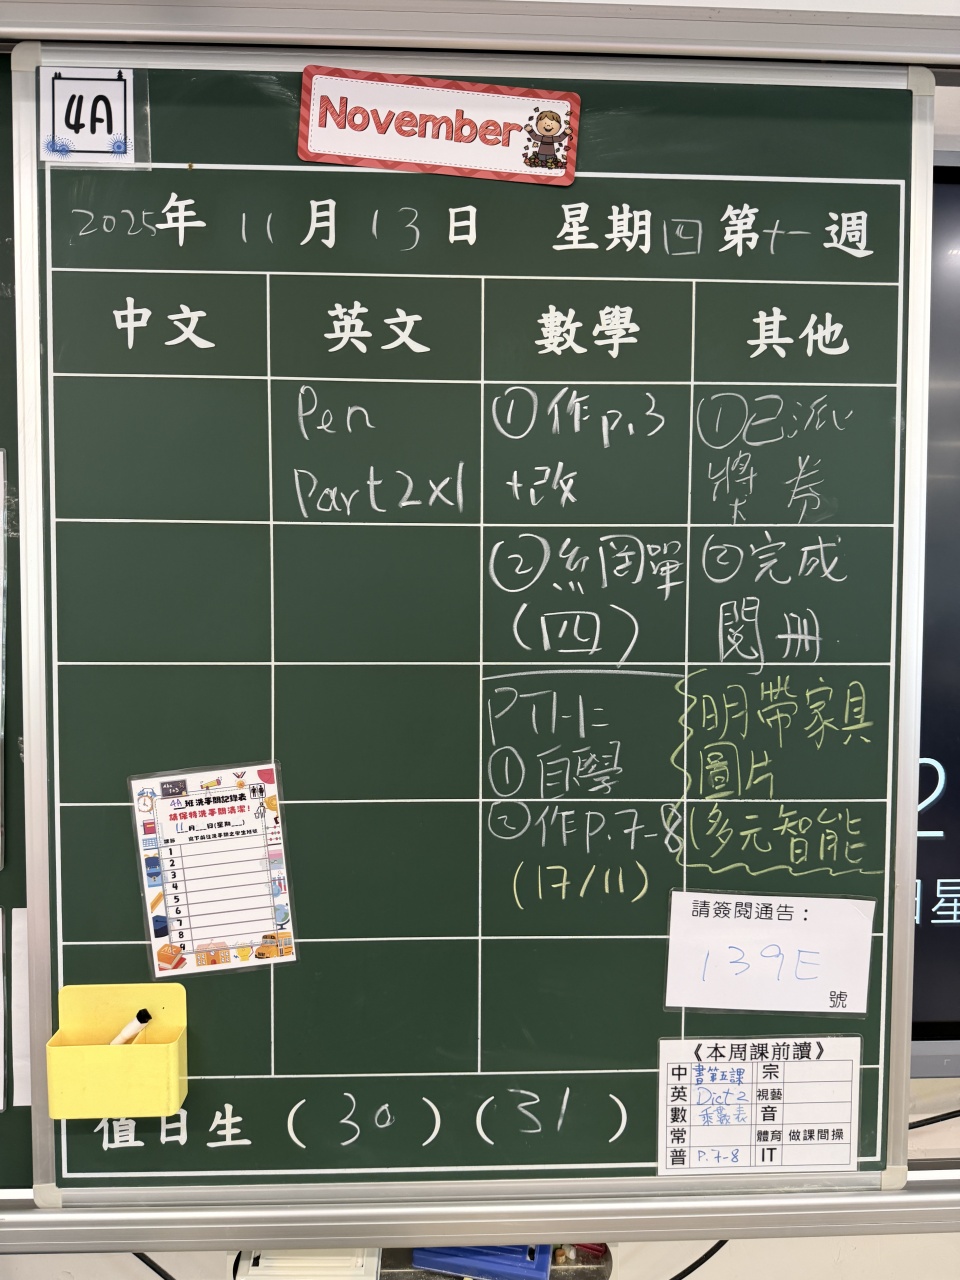 4A
November
2025年 11月 13日 星期四 第十一週
中文 英文 數學 其他
Pen
Part 2x1
①作p.3
+改
②網單
(四)
PTH-仁
①自學
②作P.7-8
(17/11)
①已派
獎券
②完成
閱冊
明帶家具
圖片
多元智能
4A班洗手間記錄表
請保持洗手間清潔！
11月__日(星期__)
1
2
3
4
5
6
7
8
9
請簽閱通告：
139E
號
《本周課前讀》
中 書第五課 宗
英 Dict 2 視藝
數 乘數表 音
常 體育 做課間操
普 P.7-8 IT
值日生 (30) (31)
2
日星